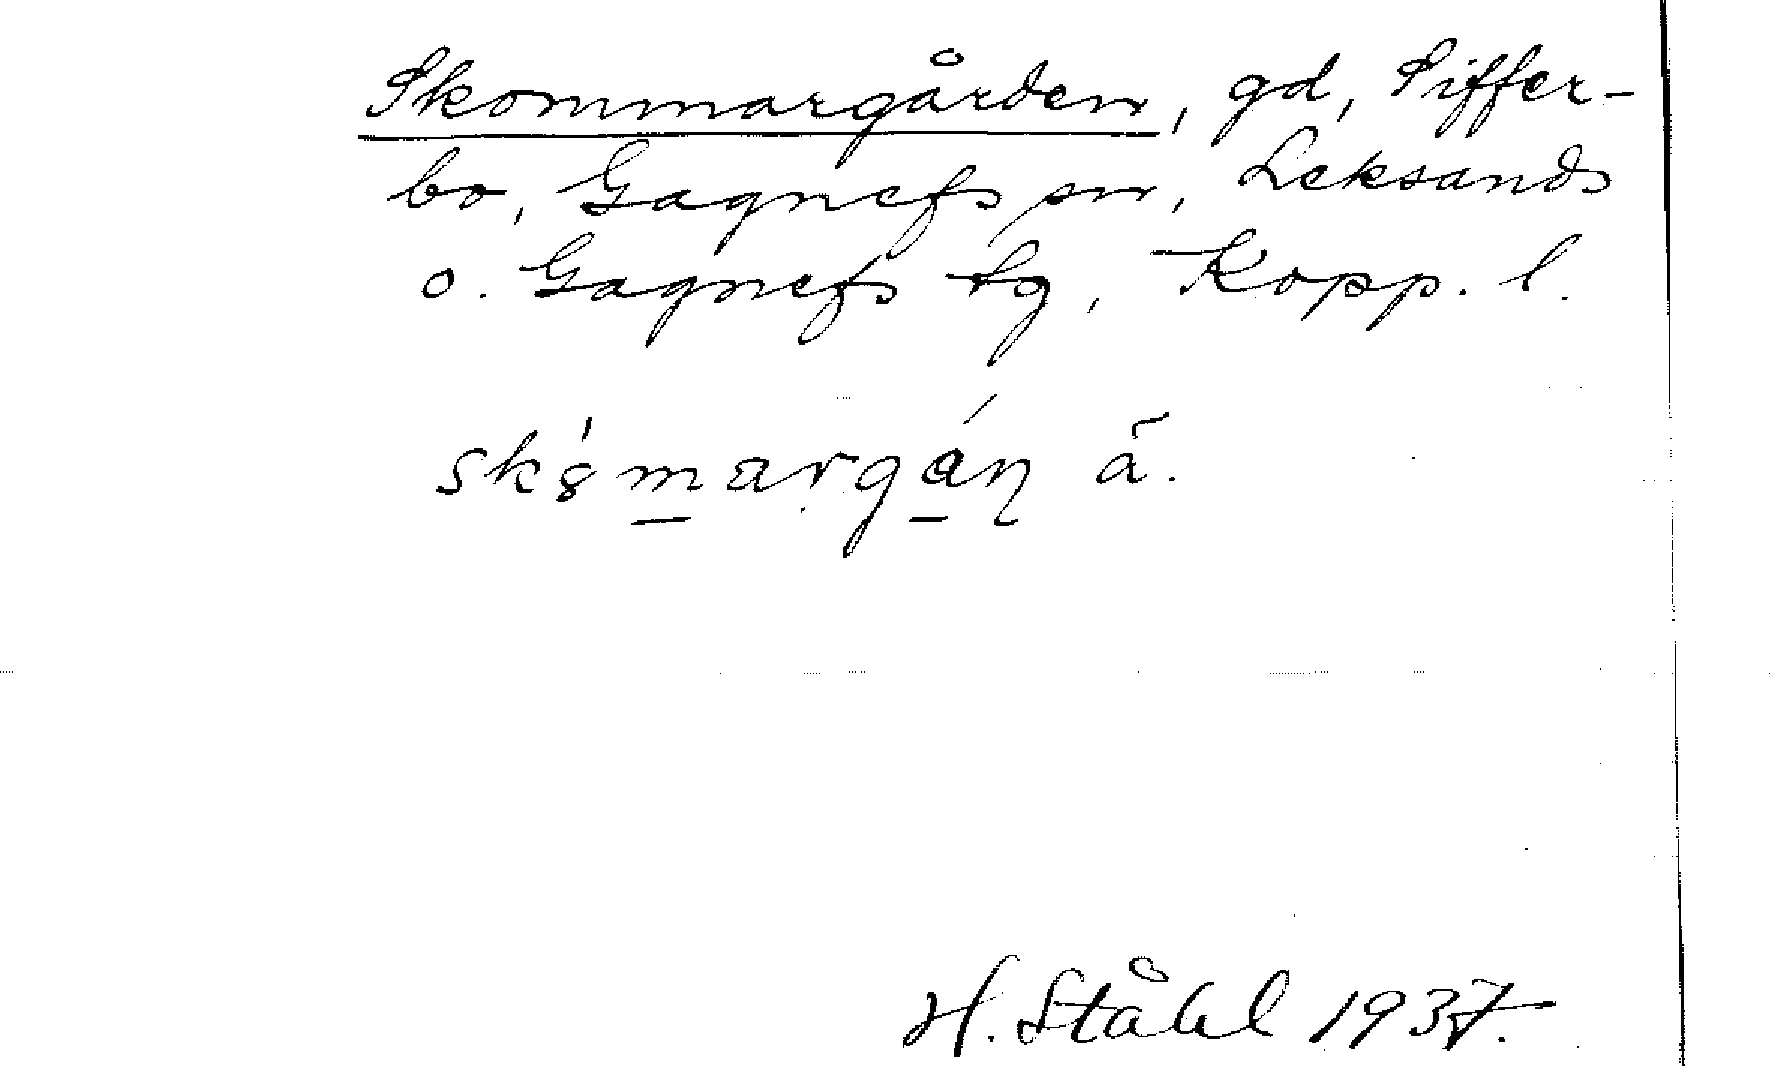 Skommargården, gd, Siffer-
bo, Gagnefs sn, Leksands
o. Gagnefs tg, Kopp. l.
ã.
H. Ståhl 1937.